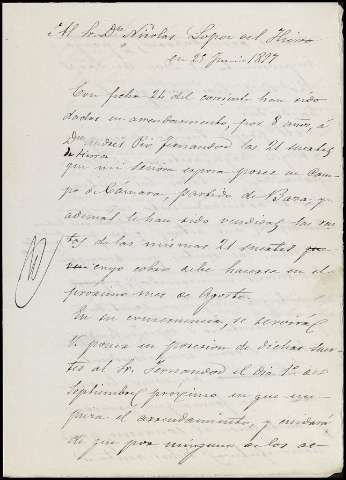 Al Sr. Dn. Nicolas Lopez del Hierro
en 25 Junio 1897
Con fecha 24 del corriente han sido
dadas en arrendamiento, por 8 años, á
Dn. Andres Fernandez las 21 suertes
de tierra
que mi señora esposa posee en Cam-
po de Cámara, partido de Baza; y
ademas le han sido vendidas las
de las mismas 21 suertes
cuyo cobro debe hacerse en el
próximo mes de Agosto.
En su consecuencia, se servirá
V. poner en posesion de dichas suer-
tes al Sr. Fernandez el dia 1º de
Septiembre próximo en que em-
pieza el arrendamiento, y cuidará
de que por ninguno de los